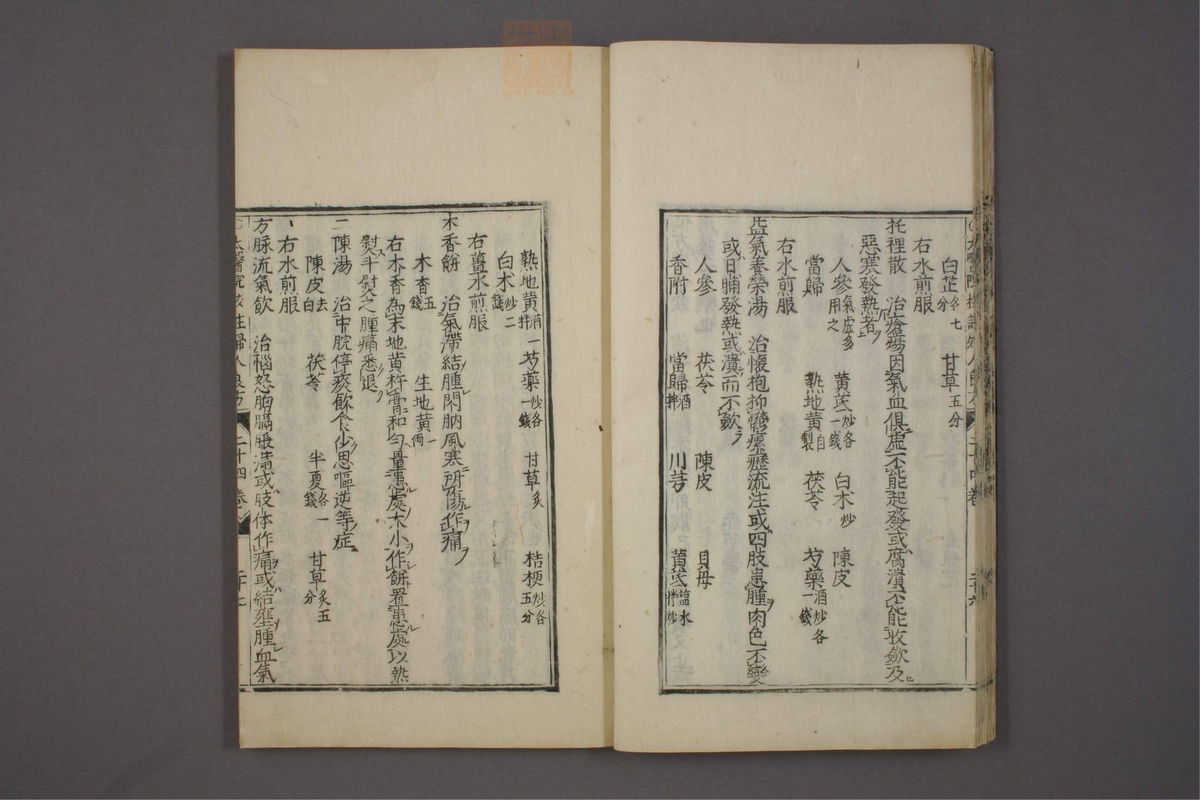 白芷各七分　甘草五分
右水煎服
托裡散　治瘡瘍因氣血俱虛不能起發或腐潰不能收斂及
惡寒發熱者
人參氣虛多用之　黄芪炒各一錢　白朮炒　陳皮
當歸　熟地黄自製　茯苓　芍藥酒炒各一錢
右水煎服
益氣養榮湯　治懷抱抑鬱瘰癧流注或四肢患腫肉色不變
或日晡發熱或潰而不斂
人參　茯苓　陳皮　貝母
香附　當歸酒拌　川芎　黄芪鹽水拌炒
二十六
熟地黄酒拌　芍藥炒各一錢　甘草炙　桔梗炒各五分
白朮炒二錢
右薑水煎服
木香餅　治氣滯結腫閃肭風寒所傷作痛
木香五錢　生地黄一兩
右木香為末地黄杵膏和勻量患處大小作餅置患處以熱
熨斗熨之腫痛悉退
二陳湯　治中脘停痰飲食少思嘔逆等症
陳皮去白　茯苓　半夏各一錢　甘草炙五分
右水煎服
方脉流氣飲　治惱怒胸膈脹滿或肢体作痛或結壅腫血氣
太醫院校註婦人良方　二十四卷　二十七